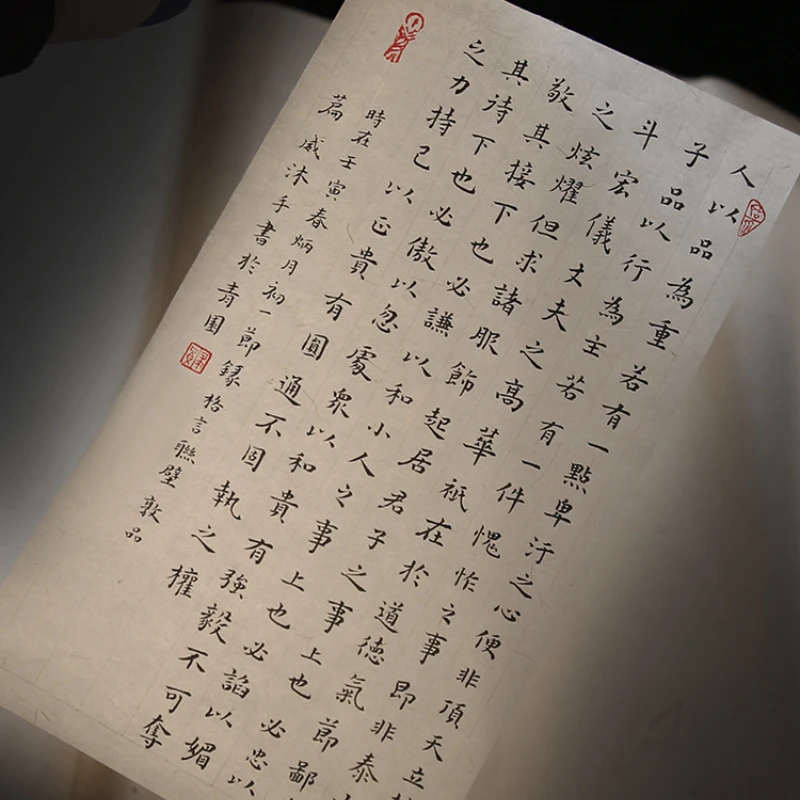 人以品為重若有一點卑汙之心便非頂天立
子品以行為主若有一件愧怍之事即非泰
斗宏儀丈夫之高華衹在於道德氣節鄙
之炫耀但求諸服飾起居君子之事上也必忠以
敬其接下也必謙以和小人之事上也必諂以媚
其待下也必傲以忽處眾以和貴有強毅不可奪
之力持己以正貴有圓通不固執之權
時在壬寅春炳月初一節錄格言聯璧敦品
篇威沐手書於青園